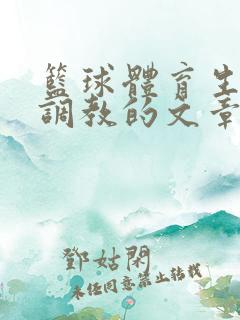 籃球體育生
調教的文章
鄧姑閑
未經同意禁止轉載